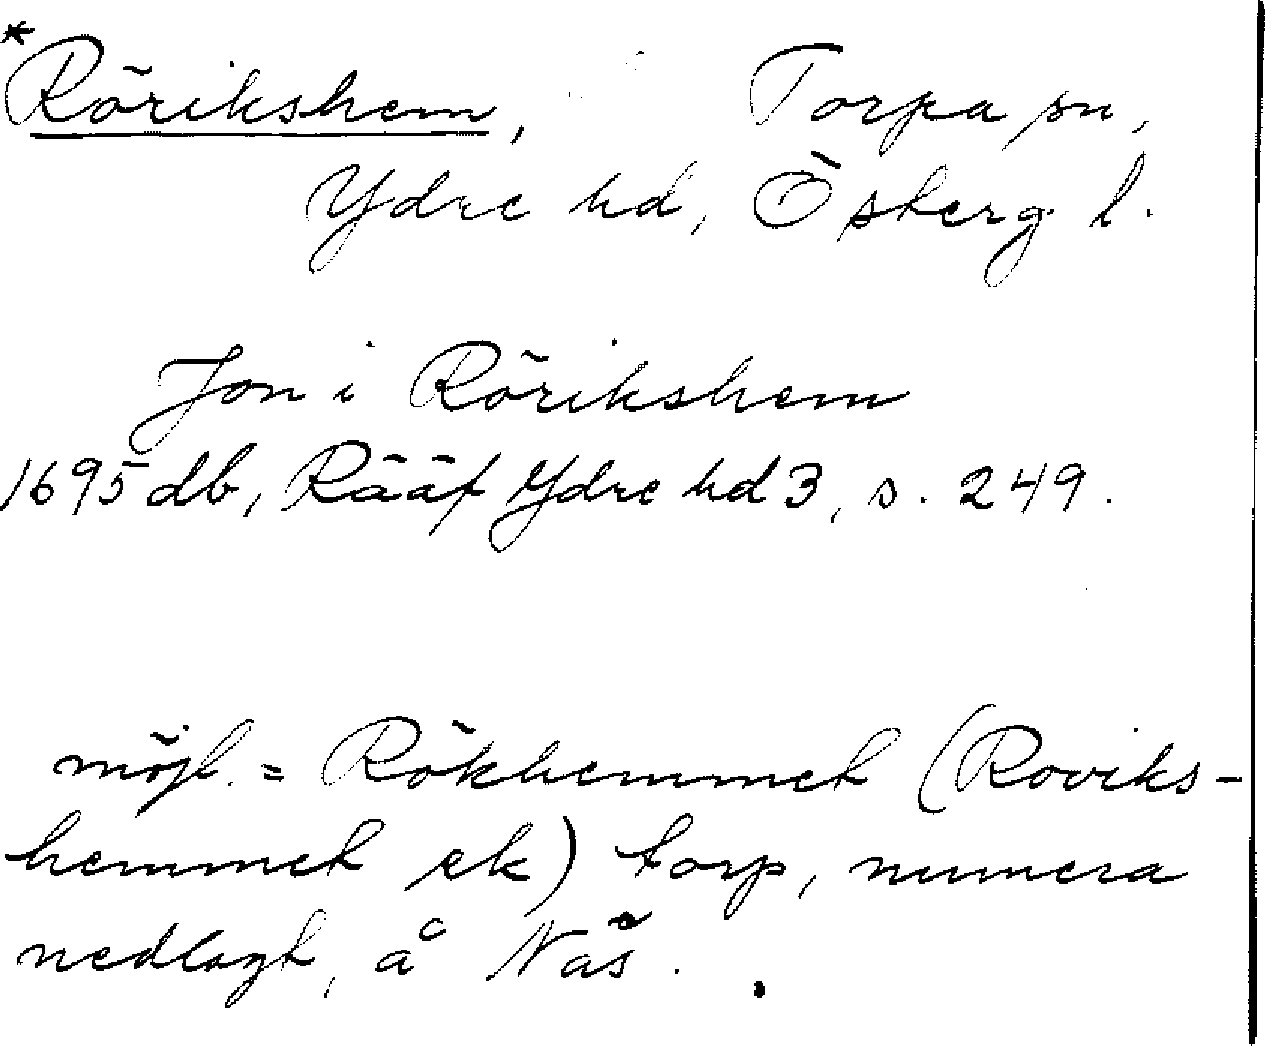 *Rörikshem, Torpa sn,
Ydre hd, Österg. l.
Jon i Rörikshem
1695 db, Rääf Ydre hd 3, s. 249.
möjl. = Rökhemmet (Roviks-
hemmet ek) torp, numera
nedlagt, å Näs.